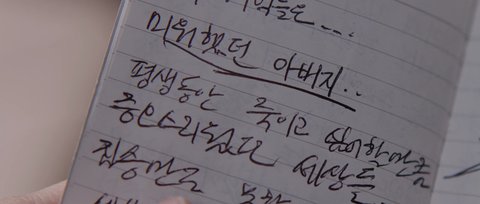 미워했던 아버지..
평생동안 죽이고 싶어할만큼
증오스러웠던 세상들
짐승만도 못한